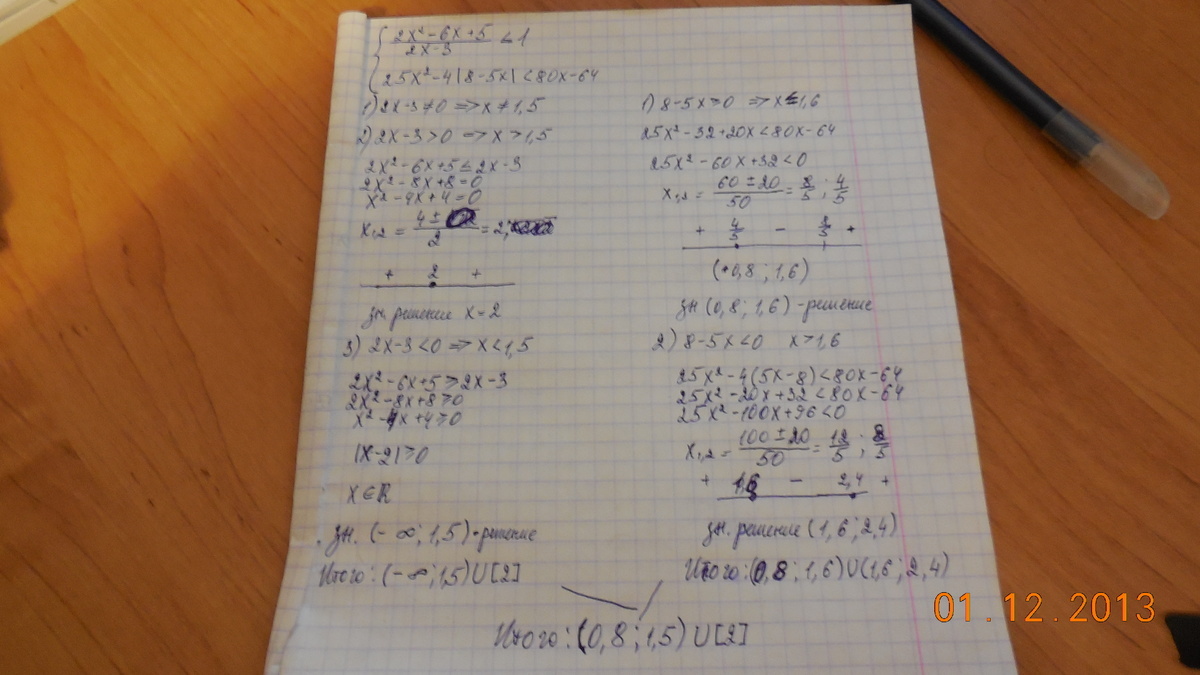 2x²-6x+5 / 2x-3 ≤ 1
25x²-4|8-5x| < 80x-64
1) 2x-3≠0 => x≠1,5
2) 2x-3>0 => x>1,5
2x²-6x+5≤2x-3
2x²-8x+8=0
x²-4x+4=0
x₁,₂ = 4± / 2 = 2,
+ 2 +
зн. решение x=2
3) 2x-3<0 => x<1,5
2x²-6x+5≥2x-3
2x²-8x+8≥0
x²-4x+4≥0
|x-2|≥0
x∈R
зн. (-∞; 1,5) - решение
Итого: (-∞; 1,5) U [2]
1) 8-5x≥0 => x≤1,6
25x²-32+20x<80x-64
25x²-60x+32<0
x₁,₂ = 60±20 / 50 = 8/5 ; 4/5
+ 4/5 - 8/5 +
(0,8; 1,6)
зн (0,8; 1,6) - решение
2) 8-5x<0 x>1,6
25x²-4(5x-8)<80x-64
25x²-20x+32<80x-64
25x²-100x+96<0
x₁,₂ = 100±20 / 50 = 12/5 ; 8/5
+ 1,6 - 2,4 +
зн. решение (1,6; 2,4)
Итого: (0,8; 1,6) U (1,6; 2,4)
Итого: (0,8; 1,5) U [2]
01.12.2013